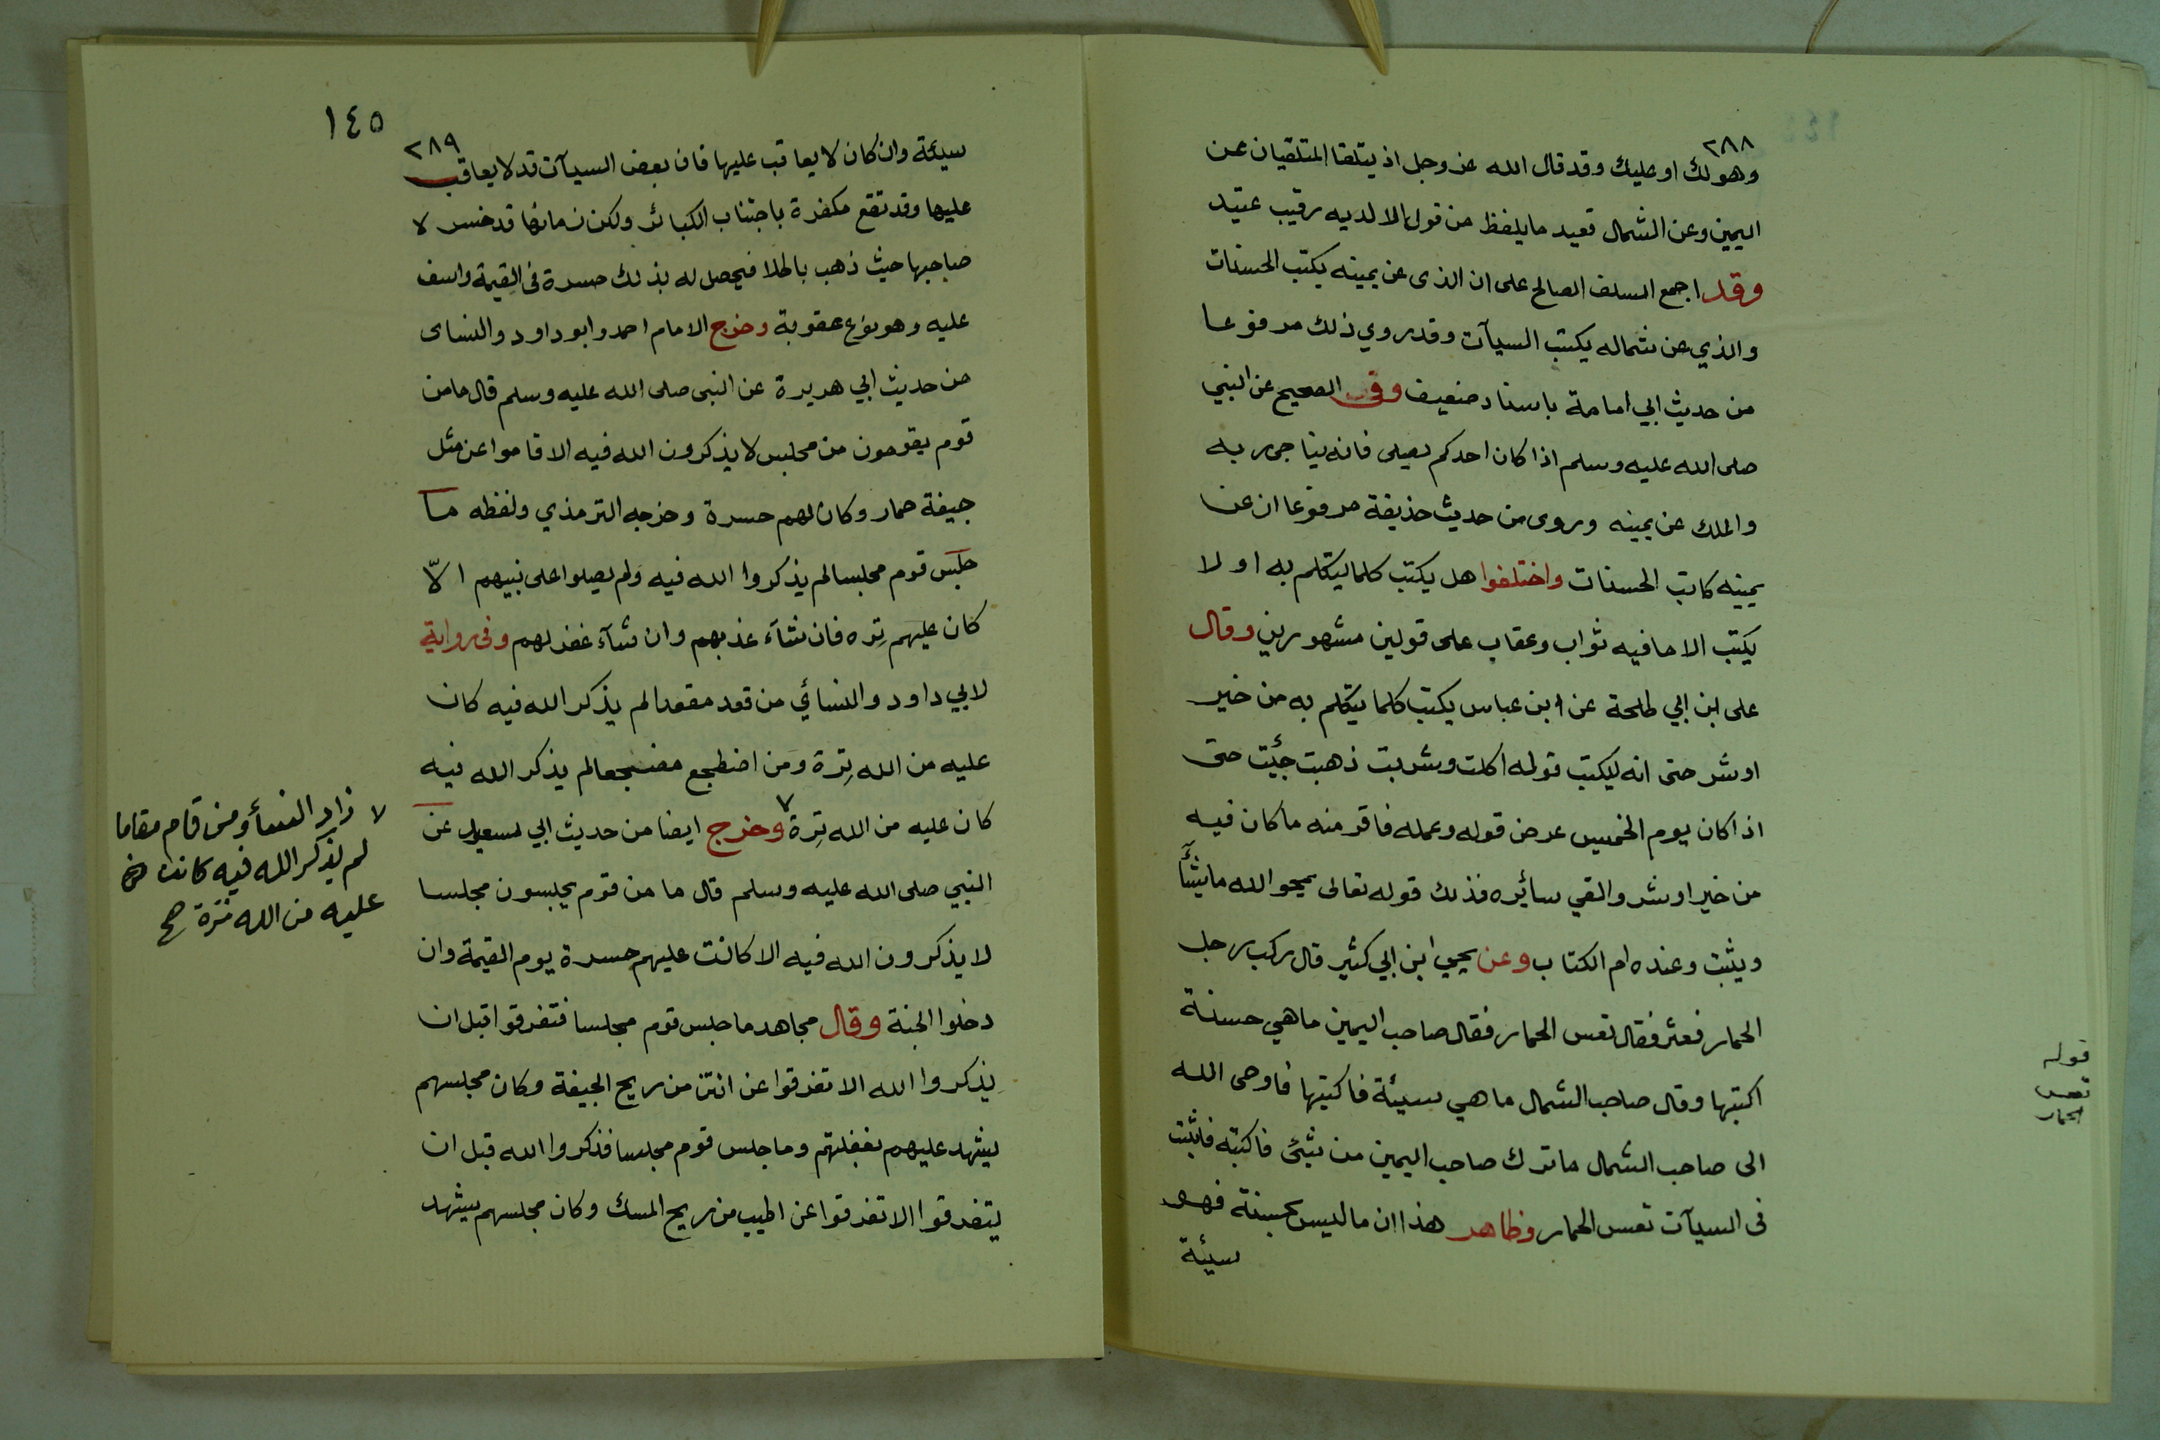 ٢٨٨
وهو لك او عليك وقد قال الله عز وجل اذ يتلقا المتلقيان عن
اليمين وعن الشمال قعيد ما يلفظ من قول الا لديه رقيب عتيد
وقد اجمع السلف الصالح على ان الذى عن يمينه يكتب الحسنات
والذي عن شماله يكتب السيآت وقد روي ذلك مرفوعا
من حديث ابي امامة باسناد ضعيف وفى الصحيح عن النبي
صلى الله عليه وسلم اذا كان احدكم يصلى فانه يناجى ربه
والملك عن يمينه وروى من حديث حذيفة مرفوعا ان عن
يمينه كاتب الحسنات واختلفوا هل يكتب كلما يتكلم به او لا
يكتب الا ما فيه ثواب وعقاب على قولين مشهورين وقال
على ابن ابي طلحة عن ابن عباس يكتب كلما يتكلم به من خير
او شر حتى انه ليكتب قوله اكلت وشربت ذهبت جئت حتى
اذا كان يوم الخميس عرض قوله وعمله فاقر منه ما كان فيه
من خير او شر والقي سائره فذلك قوله تعالى يمحو الله ما يشآء
ويثبت وعنده ام الكتاب وعن يحيي ابن ابي كثير قال ركب رجل
الحمار فعثر فقال تعس الحمار فقال صاحب اليمين ما هي حسنة
اكتبها وقال صاحب الشمال ما هي سيئة فاكتبها فاوحى الله
الى صاحب الشمال ما ترك صاحب اليمين من شئ فاكتبه فاثبت
فى السيآت تعس الحمار وظاهر هذا ان ما ليس بحسنة فهو
سيئة
قوله
تعس
الحمار
١٤٥
٢٨٩
سيئة وان كان لا يعاقب عليها فان بعض السيآت قد لا يعاقب
عليها وقد تقع مكفرة باجتناب الكبائر ولكن زمانها قد خسر لا
صاحبها حيث ذهب باطلا فيحصل له بذلك حسرة فى القيمة واسف
عليه وهو نوع عقوبة وخرج الامام احمد وابو داود والنساى
من حديث ابي هريرة عن النبى صلى الله عليه وسلم قال ما من
قوم يقومون من مجلس لا يذكرون الله فيه الا قاموا عن مثل
جيفة حمار وكان لهم حسرة وخرجه الترمذي ولفظه ما
جلس قوم مجلسا لم يذكروا الله فيه ولم يصلوا على نبيهم الّا
كان عليهم تِره فان شآء عذبهم وان شآء غفر لهم وفى رواية
لابي داود والنسائي من قعد مقعدا لم يذكر الله فيه كان
عليه من الله تِرة ومن اضطجع مضجعا لم يذكر الله فيه
كان عليه من الله تِرة وخرج ايضا من حديث ابي سعيد عن
النبي صلى الله عليه وسلم قال ما من قوم يجلسون مجلسا
لا يذكرون الله فيه الا كانت عليهم حسرة يوم القيمة وان
دخلوا الجنة وقال مجاهد ما جلس قوم مجلسا فتفرقوا قبل ان
يذكروا الله الا تفرقوا عن انتن من ريح الجيفة وكان مجلسهم
يشهد عليهم بغفلتهم وما جلس قوم مجلسا فذكروا الله قبل ان
يتفرقوا الا تفرقوا عن اطيب من ريح المسك وكان مجلسهم يشهد
زاد النسأ ومن قام مقاما
لم يذكر الله فيه كانت
عليه من الله ترة صح